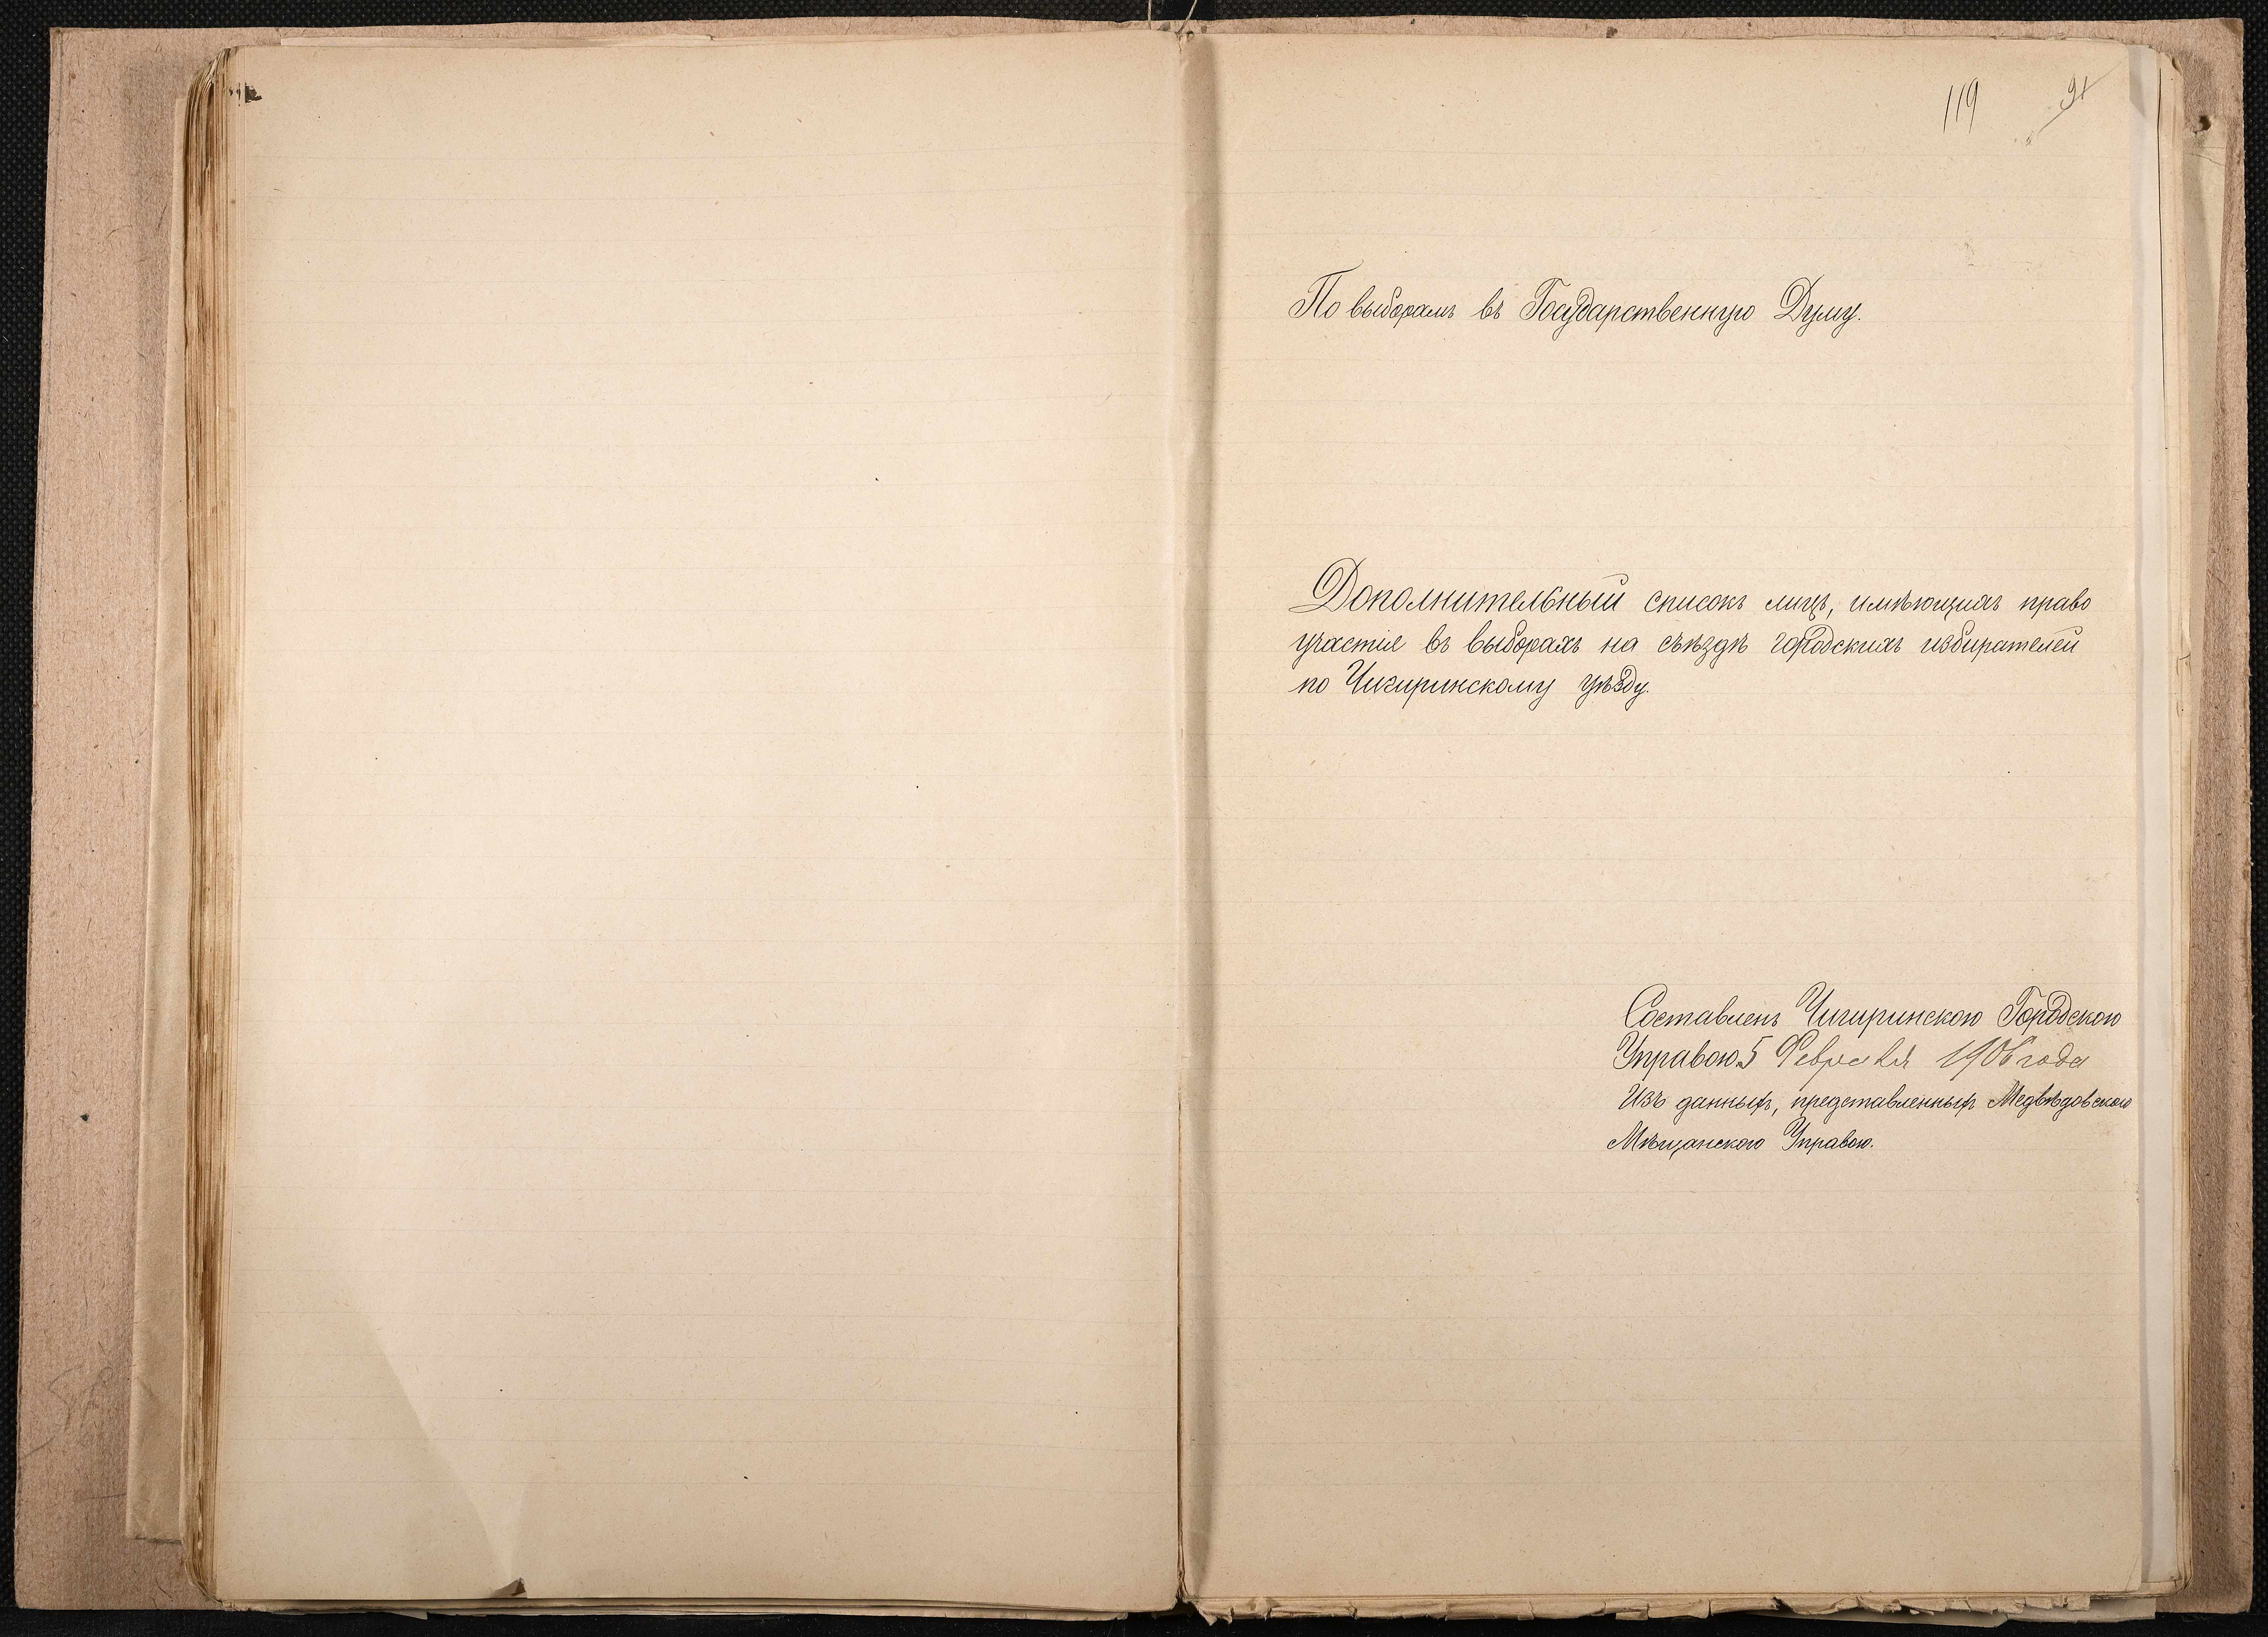 119 91
По выборамъ въ Государственную Думу.
Дополнительный списокъ лицъ, имѣющихъ право
участія въ выборахъ на съѣздѣ городскихъ избирателей
по Чигиринскому уѣзду.
Составленъ Чигиринскою Городскою
Управою 5 Февраля 1906 года
Изъ данныхъ, представленныхъ Медвѣдовскою
Мѣщанскою Управою.